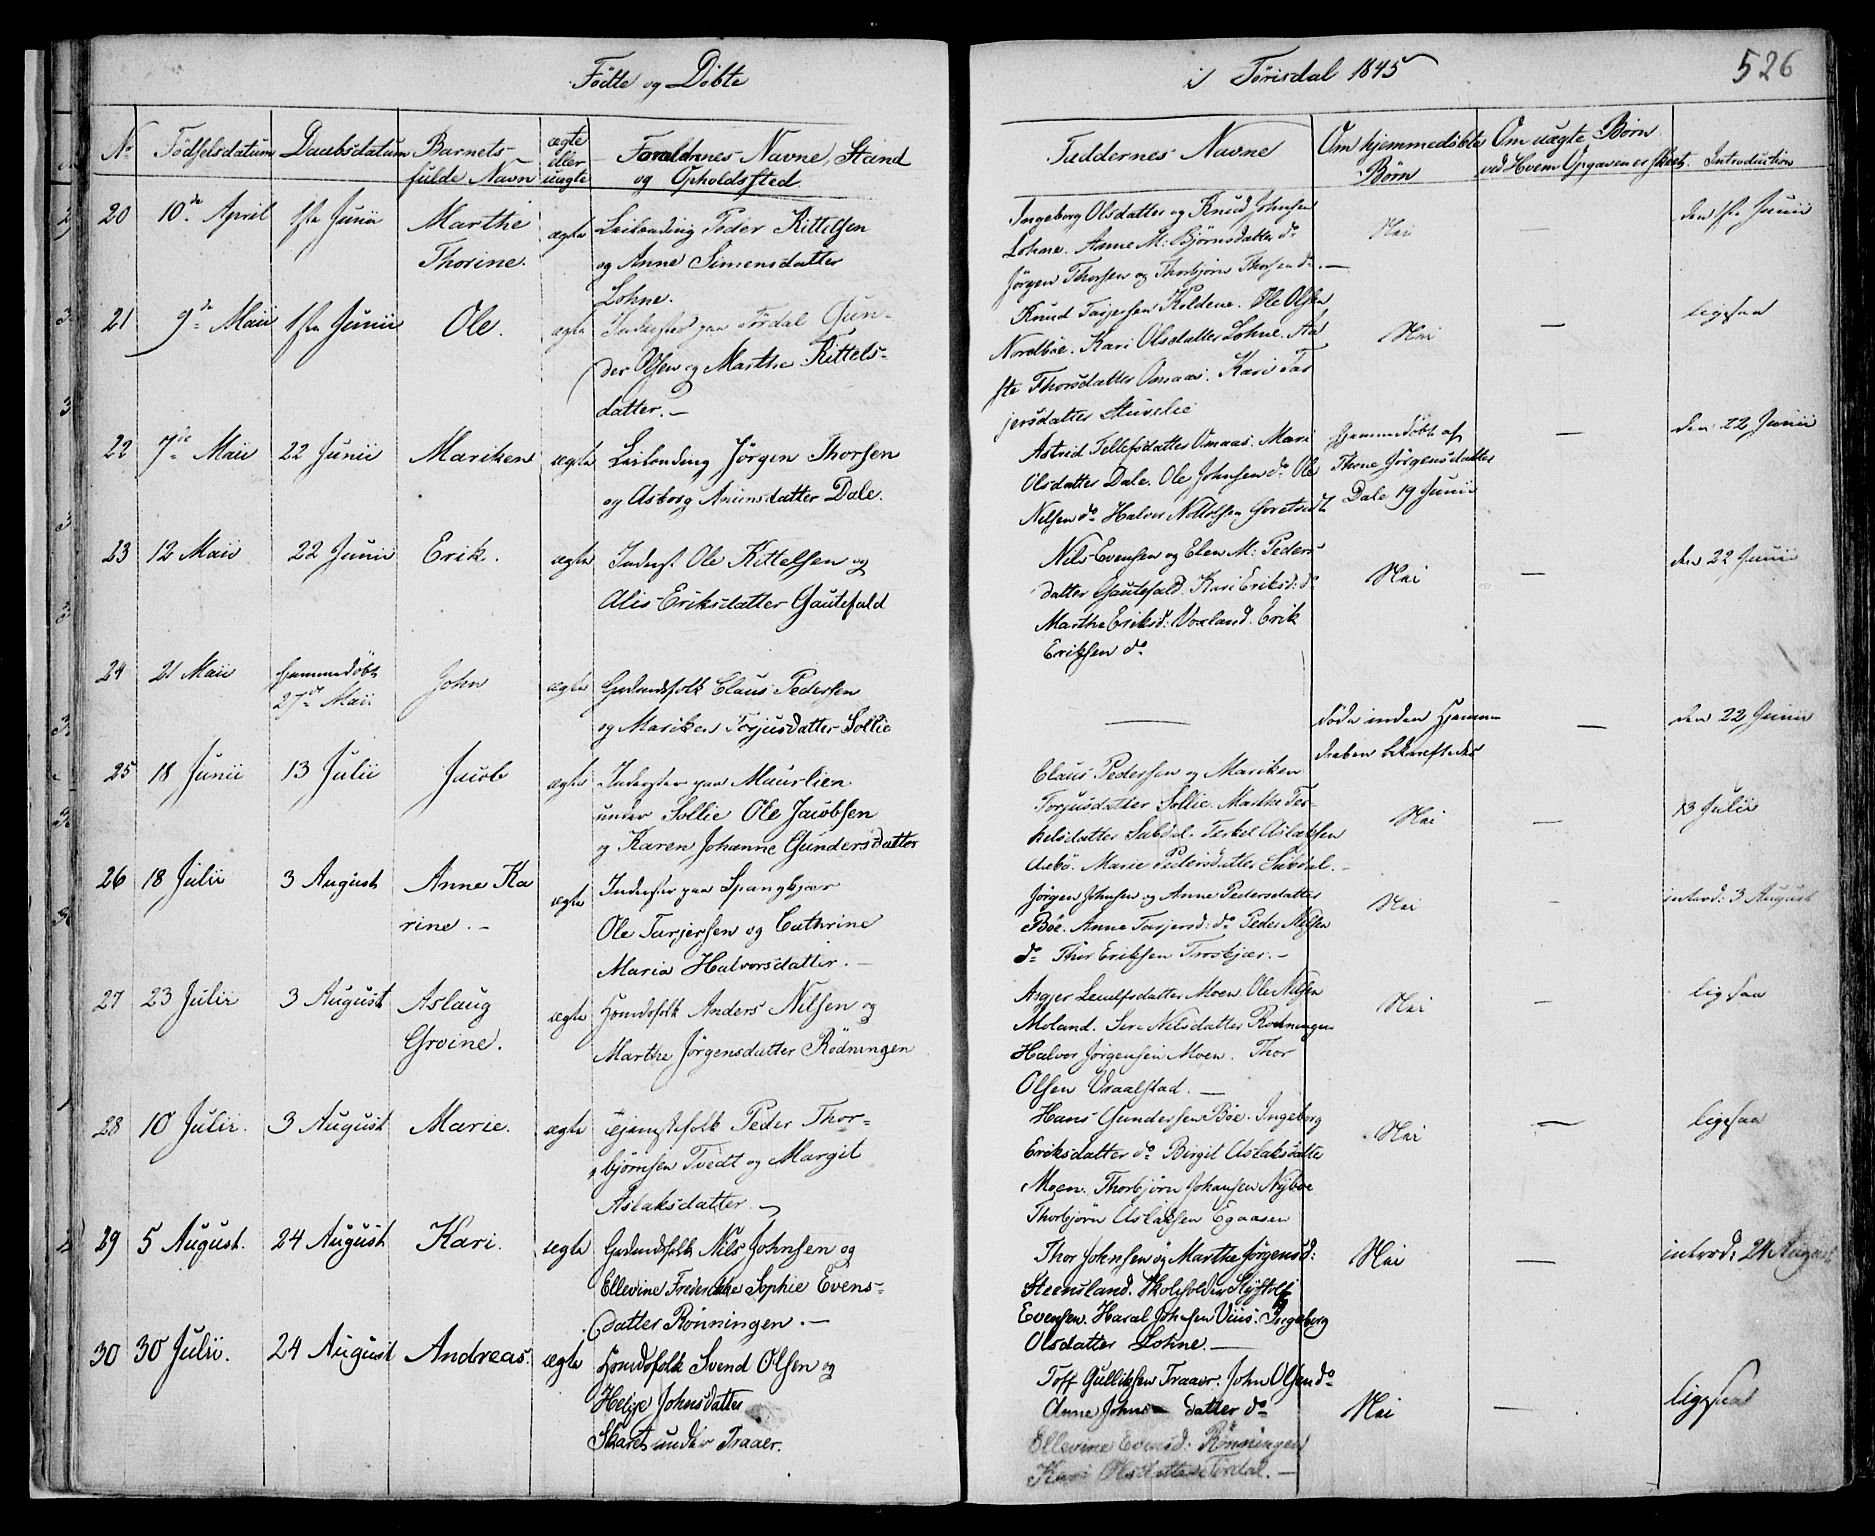 Fødte og Döbte
i Törisdal 1845
526
No
Födselsdatum
Daabsdatum
Barnets fulde Navn
ægte eller uægte
Forældrenes Navne, Stand og Opholdssted.
Faddernes Navne
Om hjemmedöbte Börn
Om uægte Börn ved Hvem Opgaven er skeet.
Introduktion
20 10de April 1ste Junii Marthe ægte Leilending Peder Kittelsen
Thorine. og Anne Simensdatter
Lohne.
Ingeborg Olsdatter og Knud Johnsen Nei — den 1ste Junii
Lohne. Anne M: Björnsdatter do
Jörgen Thorsen og Thorbjörn Thorsen do. —
21 9de Maii 1ste Junii Ole. ægte Inderster paa Tördal Gun-
der Olsen og Marthe Kittels-
datter. —
Knud Tarjersen Kildene. Ole Olsen Nei — ligesaa
Nordböe. Kari Olsdatter Lohne. Aa
ste Thorsdatter Omaas. Kari Tar
jersdatter
22 7de Maii 22 Junii Mariken ægte Leilending Jörgen Thorsen
og Asborg Anunsdatter Dale.
Astrid Tellefsdatter Omaas. Mari Hjemmedöbt af — den 22 Junii
Olsdatter Dale. Ole Johnsen do Ole Thone Jörgensdatter
Nilsen do Halvor Dale 19 Junii
23 12 Maii 22 Junii Erik. ægte Inderst Ole Kittelsen og
Alis Eriksdatter Gautefald
Nils Evensen og Elen M: Peders- Nei — den 22 Junii
datter Gautefald. Kari Eriksd: do
Marthe Eriksd: Voxland. Erik
Eriksen do
24 21 Maii Hjemmedöbt 27de Maii. John ægte Gaardmandsfolk Claus Pedersen
og Mariken Torjusdatter Sollie
— döde inden Hjemme- — den 22 Junii
daaben bekræftedes
25 18 Junii 13 Julii Jacob ægte Inderster paa Maurlien
under Sollie Ole Jacobsen
og Karen Johanne Gundersdatter
Claus Pedersen og Mariken Nei — 13 Julii
Torjusdatter Sollie. Marthe Ter-
kelsdatter Terkel Aslaksen
Aasbö. Marie Pedersdatter —
26 18 Julii 3 August Anne Ka ægte Inderster paa Spangkjær
rine. — Ole Tarjersen og Cathrine
Maria Halvorsdatter. —
Jörgen Johnsen og Anne Pedersdatter Nei — introd: 3 August
Böe. Anne Tarjersd: do Peder Nilsen
do Thor Eriksen —
27 23 Julii 3 August Aslaug ægte Huusmandsfolk Anders Nilsen og
Groine. Marthe Jörgensdatter Rödningen
Asgjer Leulfsdatter Moen. Ole Nilsen Nei — ligesaa
Moland. Siri Nilsdatter Rödningen
Halvor Jörgensen Moen. Thor
Olsen Vraalstad. —
28 10 Julii. 3 August Marie. ægte Tjenestefolk Peder Thor-
björnsen Tvedt og Margit
Aslaksdatter. —
Hans Gundersen Böe. Ingeborg Nei — ligesaa
Eriksdatter do Birgit Aslaksdatte
Moen. Thorbjörn Johansen Nyboe
Thorbjörn Aslaksen Egaasen
29 5 August. 24 August Kari. ægte Gaardmandsfolk Nils Johnsen og
Ellevine Frederikke Sophie Evens-
datter Rönningen. —
Thor Johnsen og Marthe Jörgensd: Nei — introd: 24 August
Steensland. Skoleholder
Evensen. Haral Johnsen Viiis. Ingeborg
Olsdatter Lohne —
30 30 Julii. 24 August Andreas. ægte Huusmandsfolk Svend Olsen og
Helje Johnsdatter
Skaret under Traaer.
Toff Gulliksen Traaer. John Olsen do Nei — ligesaa
Anne Johns — datter do
Ellevine Evensd: Rönningen
Kari Olsdatter Tördal. —